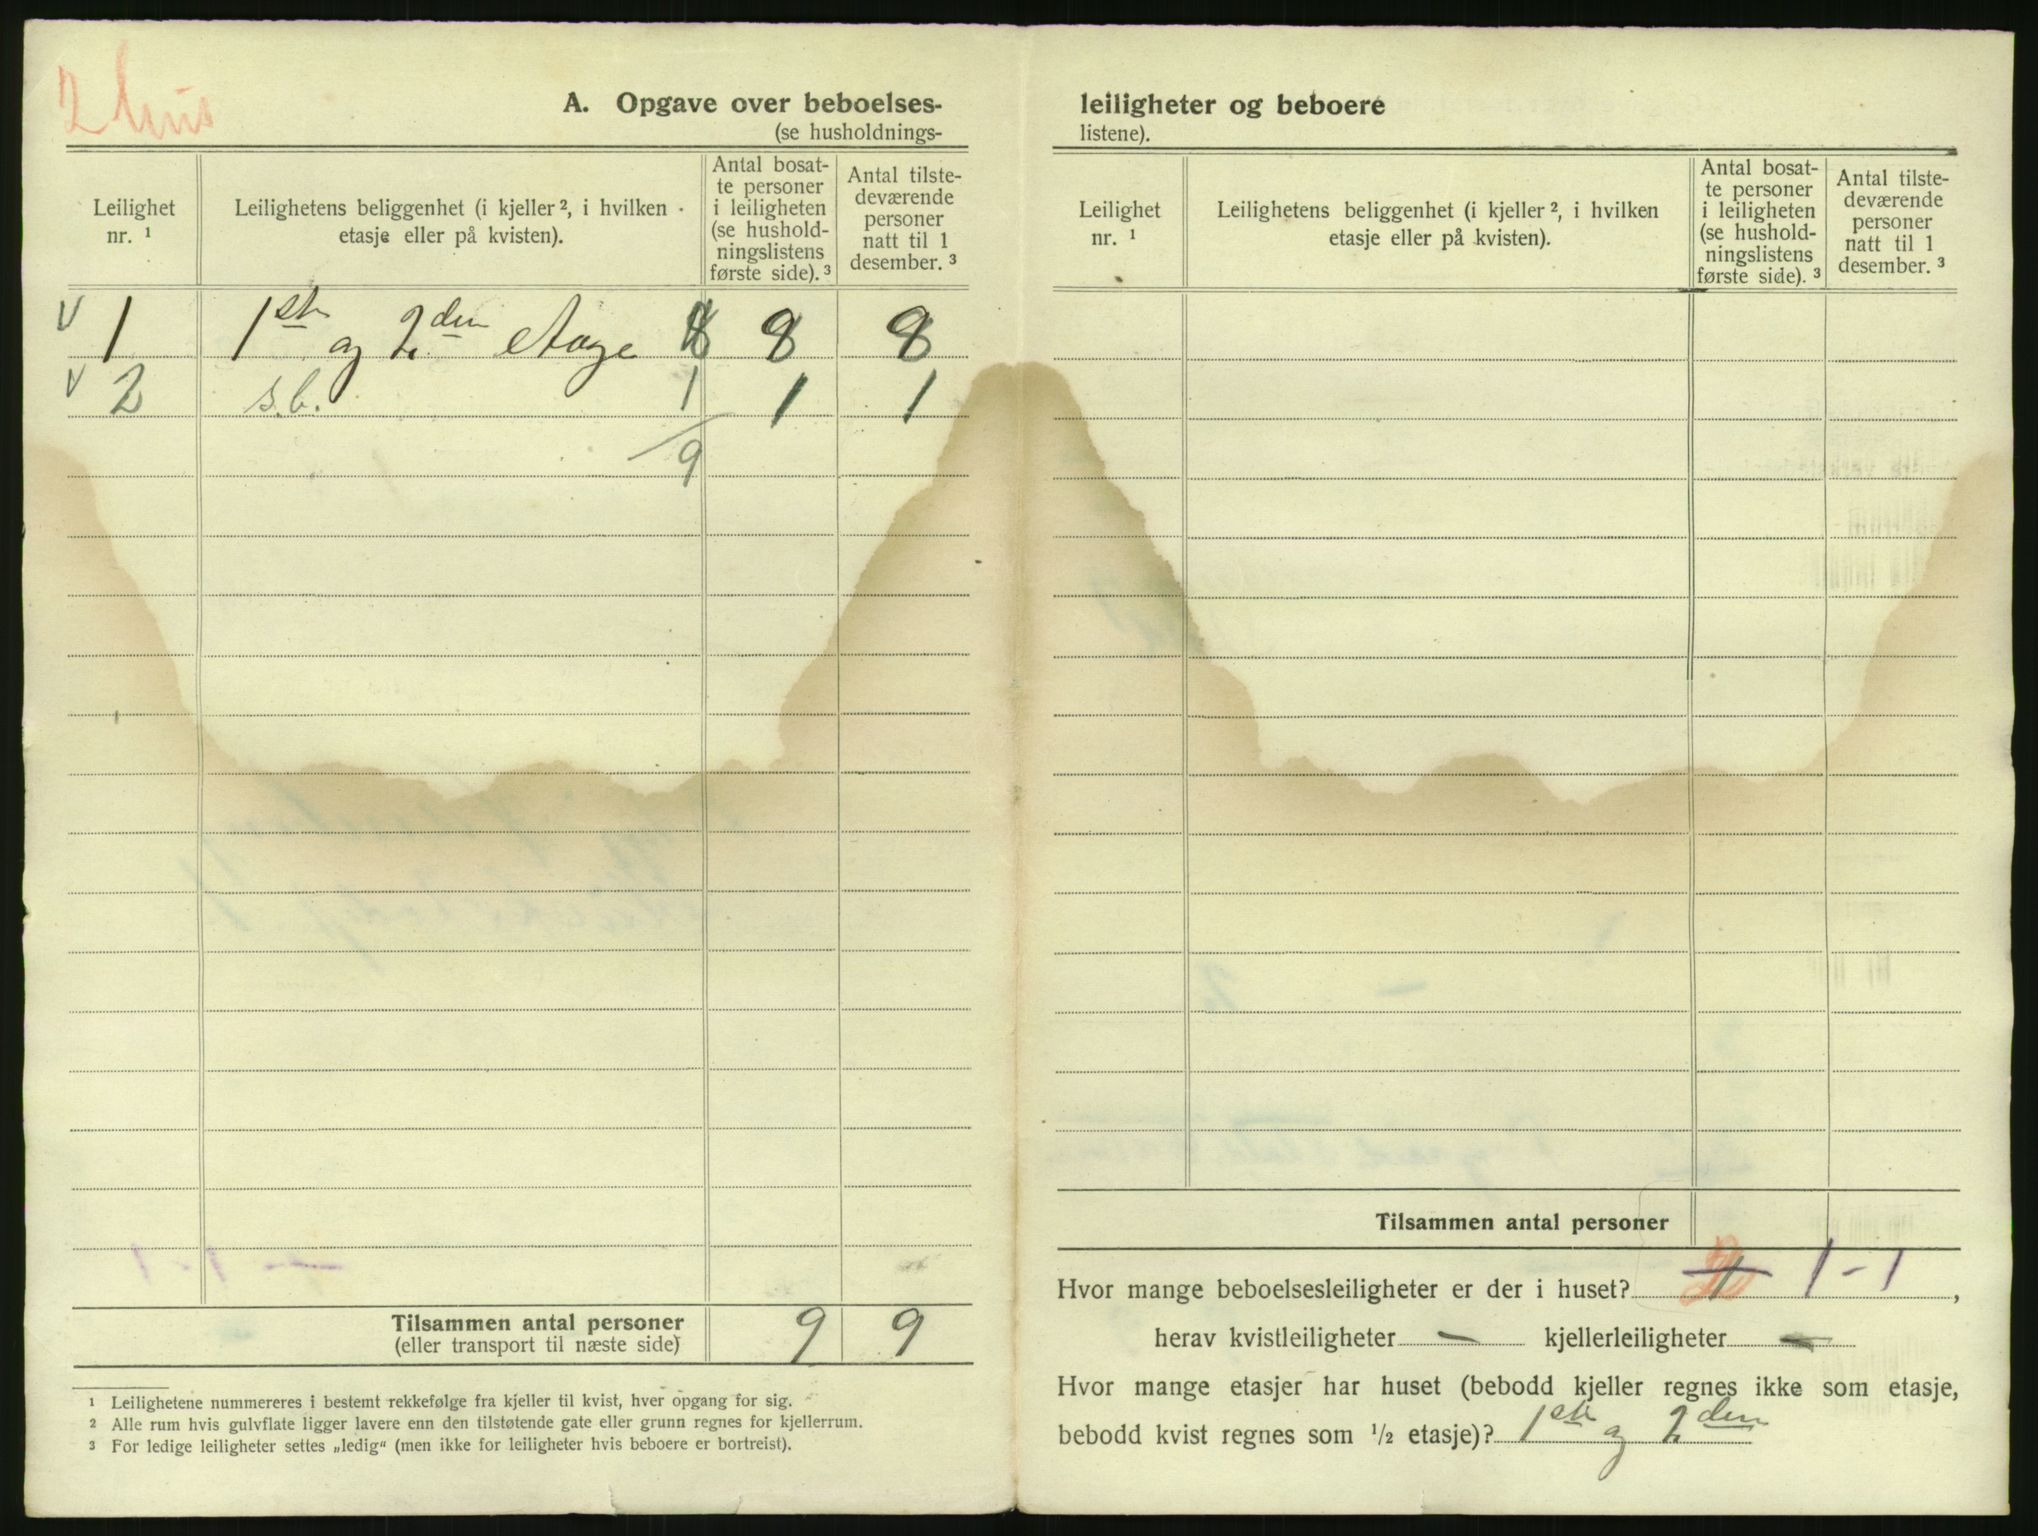 2 hus
A. Opgave over beboelses-
(se husholdnings-
Leilighet nr. ¹
Leilighetens beliggenhet (i kjeller ², i hvilken etasje eller på kvisten).
Antal bosat-
te personer
i leiligheten
(se hushold-
ningslistens
første side). ³
Antal tilste-
deværende
personer
natt til 1
desember. ³
√ 1 1ste og 2den etage 8 8 8
√ 2 s.b. 1 1 1
9
Tilsammen antal personer 9 9
(eller transport til næste side)
¹ Leilighetene nummereres i bestemt rekkefølge fra kjeller til kvist, hver opgang for sig.
² Alle rum hvis gulvflate ligger lavere enn den tilstøtende gate eller grunn regnes for kjellerrum.
³ For ledige leiligheter settes „ledig“ (men ikke for leiligheter hvis beboere er bortreist).
leiligheter og beboere
listene).
Leilighet nr. ¹
Leilighetens beliggenhet (i kjeller ², i hvilken etasje eller på kvisten).
Antal bosat-
te personer
i leiligheten
(se hushold-
ningslistens
første side). ³
Antal tilste-
deværende
personer
natt til 1
desember. ³
Tilsammen antal personer
Hvor mange beboelsesleiligheter er der i huset? 1 - 1,
herav kvistleiligheter — kjellerleiligheter —
Hvor mange etasjer har huset (bebodd kjeller regnes ikke som etasje,
bebodd kvist regnes som ½ etasje)? 1ste og 2den